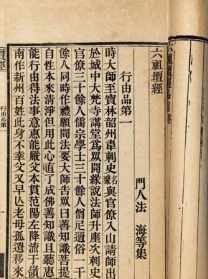 六祖壇經
門人法 海等集
行由品第一
時大師至寶林韶州韋刺史與官僚入山請師出
於城中大梵寺講堂為眾開緣說法師升座次刺史
官僚三十餘人儒宗學士三十餘人僧尼道俗一千
餘人同時作禮願聞法要大師告眾曰善知識菩提
自性本來清淨但用此心直了成佛善知識且聽惠
能行由得法事意惠能嚴父本貫范陽左降流于嶺
南作新州百姓此身不幸父又早亡老母孤遺移來